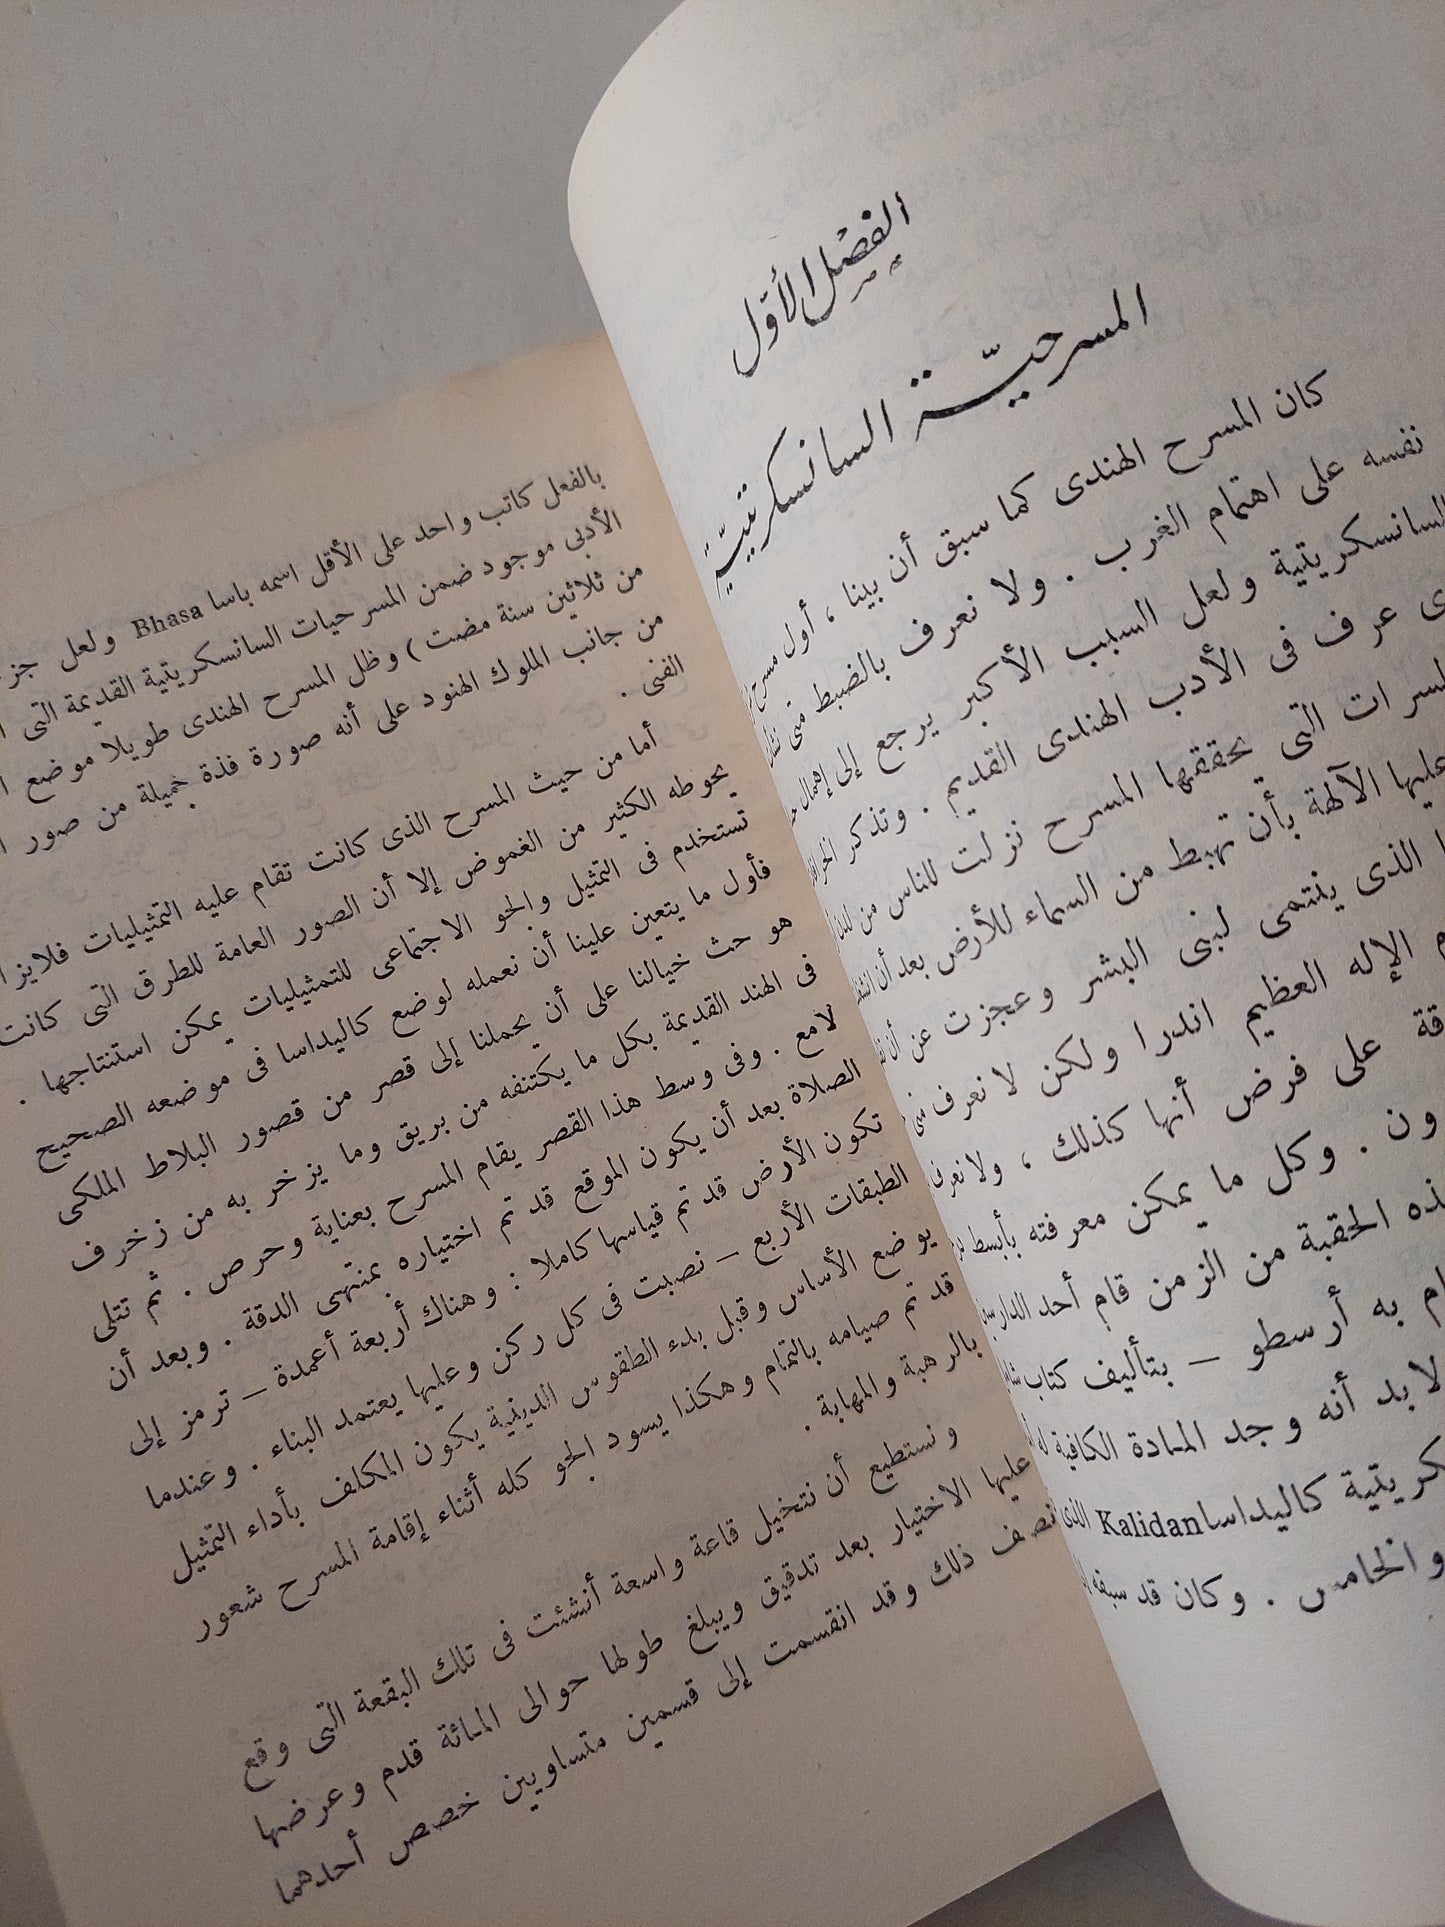 الفصل الأول
المسرحية السانسكريتية
كان المسرح الهندى كما سبق أن بينا ، أول مسرح
نفسه على اهتمام الغرب . ولا نعرف بالضبط متى
السانسكريتية ولعل السبب الأكبر يرجع إلى إهمال
عرف فى الأدب الهندى القديم . وتذكر
التى يحققها المسرح نزلت للناس من لدن
عليها الآلهة بأن تهبط من السماء للأرض بعد أن
الذى ينتمى لبنى البشر وعجزت عن أن
الإله العظيم اندرا ولكن لا نعرف
على فرض أنها كذلك ، ولا نعرف
وكل ما يمكن معرفته بأبسط
الحقبة من الزمن قام أحد
به أرسطو – بتأليف كتاب
لابد أنه وجد المادة الكافية له
كاليداسا Kalidan الذى
والخامس . وكان قد سبقه
بالفعل كاتب واحد على الأقل اسمه باسا Bhasa ولعل
الأدبى موجود ضمن المسرحيات السانسكريتية القديمة التى
من ثلاثين سنة مضت ) وظل المسرح الهندى طويلا موضع
من جانب الملوك الهنود على أنه صورة فذة جميلة من صور
الفنى .
أما من حيث المسرح الذى كانت تقام عليه التمثيليات
يحوطه الكثير من الغموض إلا أن الصور العامة للطرق التى كانت
تستخدم فى التمثيل والجو الاجتماعى للتمثيليات يمكن استنتاجها .
فأول ما يتعين علينا أن نعمله لوضع كاليداسا فى موضعه الصحيح
هو حث خيالنا على أن يحملنا إلى قصر من قصور البلاط الملكى
فى الهند القديمة بكل ما يكتنفه من بريق وما يزخر به من زخرف
لامع . وفى وسط هذا القصر يقام المسرح بعناية وحرص . ثم تتلى
الصلاة بعد أن يكون الموقع قد تم اختياره بمنتهى الدقة . وبعد أن
تكون الأرض قد تم قياسها كاملا : وهناك أربعة أعمدة – ترمز إلى
الطبقات الأربع – نصبت فى كل ركن وعليها يعتمد البناء . وعندما
يوضع الأساس وقبل بدء الطقوس الدينية يكون المكلف بأداء التمثيل
قد تم صيامه بالتمام وهكذا يسود الجو كله أثناء إقامة المسرح شعور
بالرهبة والمهابة .
ونستطيع أن نتخيل قاعة واسعة أنشئت فى تلك البقعة التى وقع
عليها الاختيار بعد تدقيق ويبلغ طولها حوالى المائة قدم وعرضها
نصف ذلك وقد انقسمت إلى قسمين متساويين خصص أحدهما